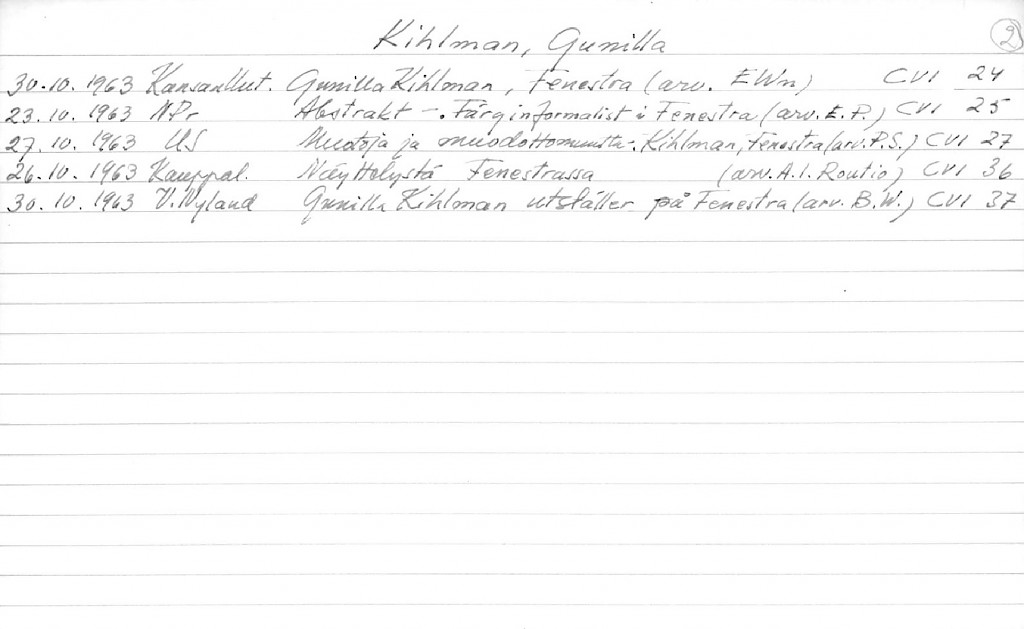 Kihlman, Gunilla
2
30.10.1963 Kansanllut. Gunilla Kihlman, Fenestra (arv. EWn) CVI 24
23.10.1963 NPr Abstrakt -. Färginformalist i Fenestra (arv. E.P.) CVI 25
27.10.1963 US Muotoja ja muodottomuutta-. Kihlman, Fenestra (arv. P.S.) CVI 27
26.10.1963 Kauppal. Näyttelystä Fenestrassa (arv. A.I. Routio) CVI 36
30.10.1963 V.Nyland Gunilla Kihlman utställer på Fenestra (arv. B.W.) CVI 37